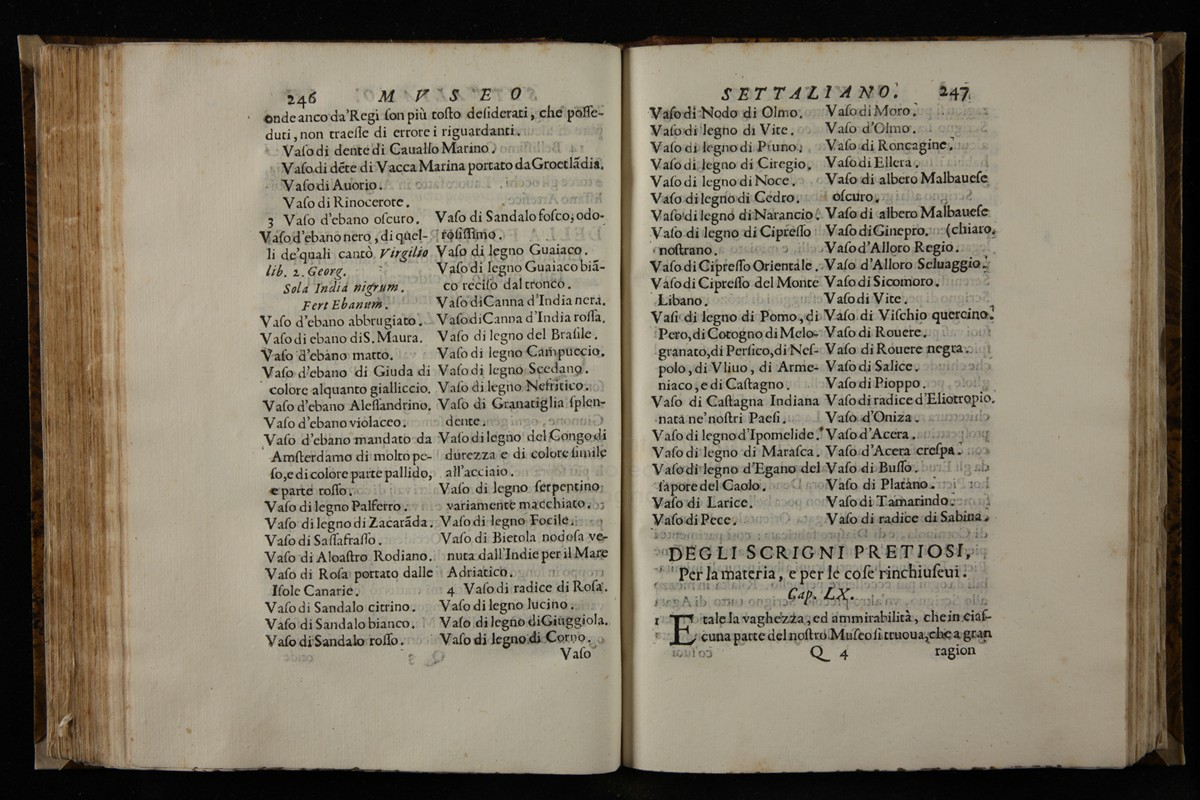 246 MVSEO
onde anco da'Regi ſon più toſto deſiderati, che poſſe-
duti, non traeſſe di errore i riguardanti.
Vaſo di dente di Cauallo Marino.
Vaſo di dẽte di Vacca Marina portato da Groetlãdia.
Vaſo di Auorio.
Vaſo di Rinocerote.
3 Vaſo d'ebano oſcuro.
Vaſo d'ebano nero, di quel-
li de'quali cantò Virgilio
lib. 2. Georg.
Sola India nigrum.
Fert Ebanum.
Vaſo d'ebano abbrugiato.
Vaſo di ebano di S. Maura.
Vaſo d'ebano matto.
Vaſo d'ebano di Giuda di
colore alquanto gialliccio.
Vaſo d'ebano Aleſſandrino.
Vaſo d'ebano violaceo.
Vaſo d'ebano mandato da
Amſterdamo di molto pe-
ſo, e di colore parte pallido,
e parte roſſo.
Vaſo di legno Palferro.
Vaſo di legno di Zacarãda.
Vaſo di Saſſafraſſo.
Vaſo di Aloaſtro Rodiano.
Vaſo di Roſa portato dalle
Iſole Canarie.
Vaſo di Sandalo citrino.
Vaſo di Sandalo bianco.
Vaſo di Sandalo roſſo.
Vaſo di Sandalo foſco, odo-
roſiſſimo.
Vaſo di legno Guaiaco.
Vaſo di legno Guaiaco biã-
co reciſo dal tronco.
Vaſo di Canna d'India nera.
Vaſo di Canna d'India roſſa.
Vaſo di legno del Braſile.
Vaſo di legno Campuccio.
Vaſo di legno Scedano.
Vaſo di legno Nefritico.
Vaſo di Granatiglia ſplen-
dente.
Vaſo di legno del Congo di
durezza e di colore ſimile
all'acciaio.
Vaſo di legno ſerpentino
variamente macchiato.
Vaſo di legno Focile.
Vaſo di Bietola nodoſa ve-
nuta dall'Indie per il Mare
Adriatico.
4 Vaſo di radice di Roſa.
Vaſo di legno lucino.
Vaſo di legno di Giuggiola.
Vaſo di legno di Corno.
Vaſo
SETTALIANO. 247
Vaſo di Nodo di Olmo.
Vaſo di legno di Vite.
Vaſo di legno di Pruno.
Vaſo di legno di Ciregio.
Vaſo di legno di Noce.
Vaſo di legno di Cedro.
Vaſo di legno di Narancio.
Vaſo di legno di Cipreſſo
noſtrano.
Vaſo di Cipreſſo Orientale.
Vaſo di Cipreſſo del Monte
Libano.
Vaſi di legno di Pomo, di
Pero, di Cotogno di Melo-
granato, di Perſico, di Neſ-
polo, di Vliuo, di Arme-
niaco, e di Caſtagno.
Vaſo di Caſtagna Indiana
nata ne'noſtri Paeſi.
Vaſo di legno d'Ipomelide.
Vaſo di legno di Maraſca.
Vaſo di legno d'Egano del
ſapore del Caolo.
Vaſo di Larice.
Vaſo di Pece.
Vaſo di Moro.
Vaſo d'Olmo.
Vaſo di Roncagine.
Vaſo di Ellera.
Vaſo di albero Malbaueſe
oſcuro.
Vaſo di albero Malbaueſe
Vaſo di Ginepro. (chiaro.
Vaſo d'Alloro Regio.
Vaſo d'Alloro Seluaggio.
Vaſo di Sicomoro.
Vaſo di Vite.
Vaſo di Viſchio quercino.
Vaſo di Rouere.
Vaſo di Rouere negra.
Vaſo di Salice.
Vaſo di Pioppo.
Vaſo di radice d'Eliotropio.
Vaſo d'Oniza.
Vaſo d'Acera.
Vaſo d'Acera creſpa.
Vaſo di Buſſo.
Vaſo di Platano.
Vaſo di Tamarindo.
Vaſo di radice di Sabina.
DEGLI SCRIGNI PRETIOSI,
Per la materia, e per le coſe rinchiuſeui.
Cap. LX.
1 E tale la vaghezza, ed ammirabilità, che in ciaſ-
cuna parte del noſtro Muſeo ſi truoua, che a gran
Q 4 ragion